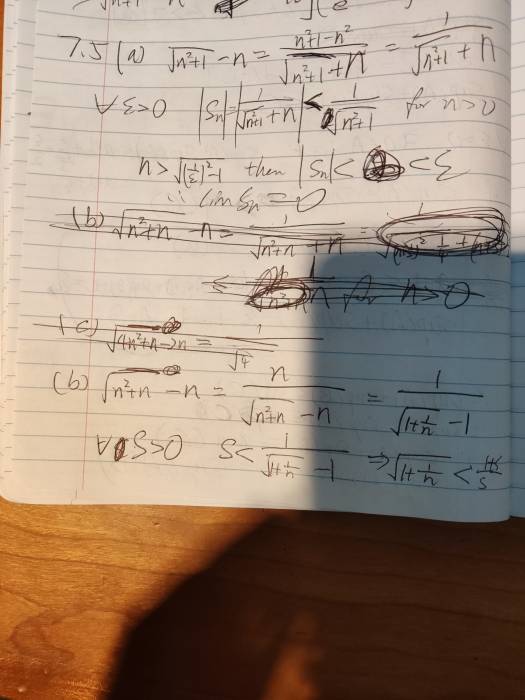 7.5 (a) √(n²+1) - n = (n²+1-n²)/(√(n²+1) + n) = 1/(√(n²+1) + n)
∀ ε>0 |Sn| = |1/(√(n²+1) + n)| < 1/√(n²+1) for n>0
n > √((1/ε)²-1) then |Sn| < < ε
∴ lim Sn = 0
(b) √(n²+n) - n = 1/(√(n²+n) + n) =
≤ for n>0
(c) √(4n²+n) - 2n = 1/√4
(b) √(n²+n) - n = n/(√(n²+n) - n) = 1/(√(1+1/n) - 1)
∀ S>0 S < 1/(√(1+1/n) - 1) ⇒ √(1+1/n) < (1+S)/S